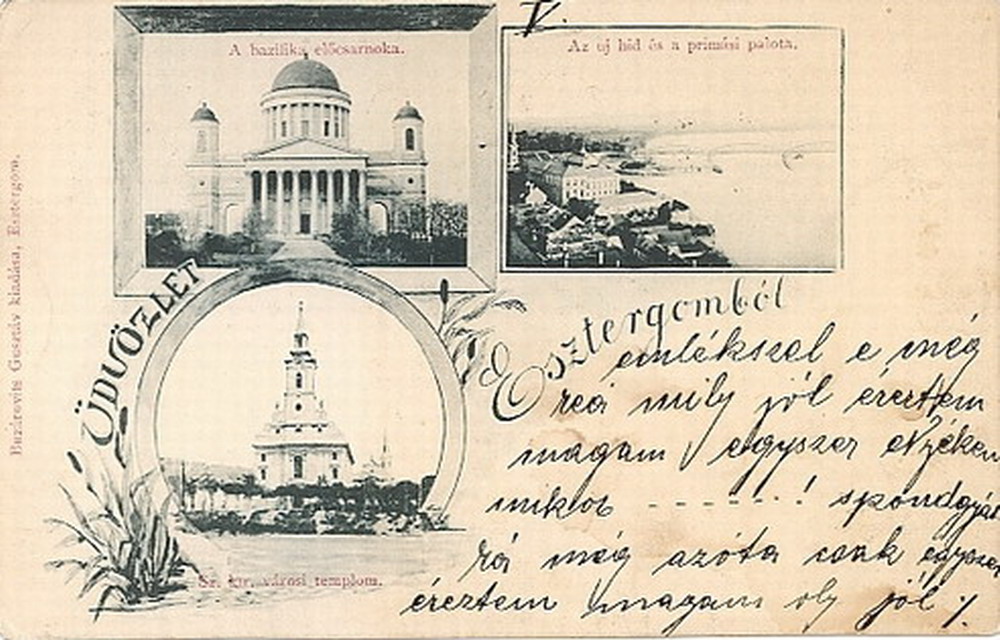 V.
A bazilika előcsarnoka.
Az uj hid és a primási palota.
Buzárovits Gusztáv kiadása, Esztergom.
ÜDVÖZLET
Esztergomból
Sz. kir. városi templom.
emlékszel e még
reá mily jól éreztem
magam egyszer
mikor - - - - - - !
rá még azóta csak egyszer
éreztem magam oly jól